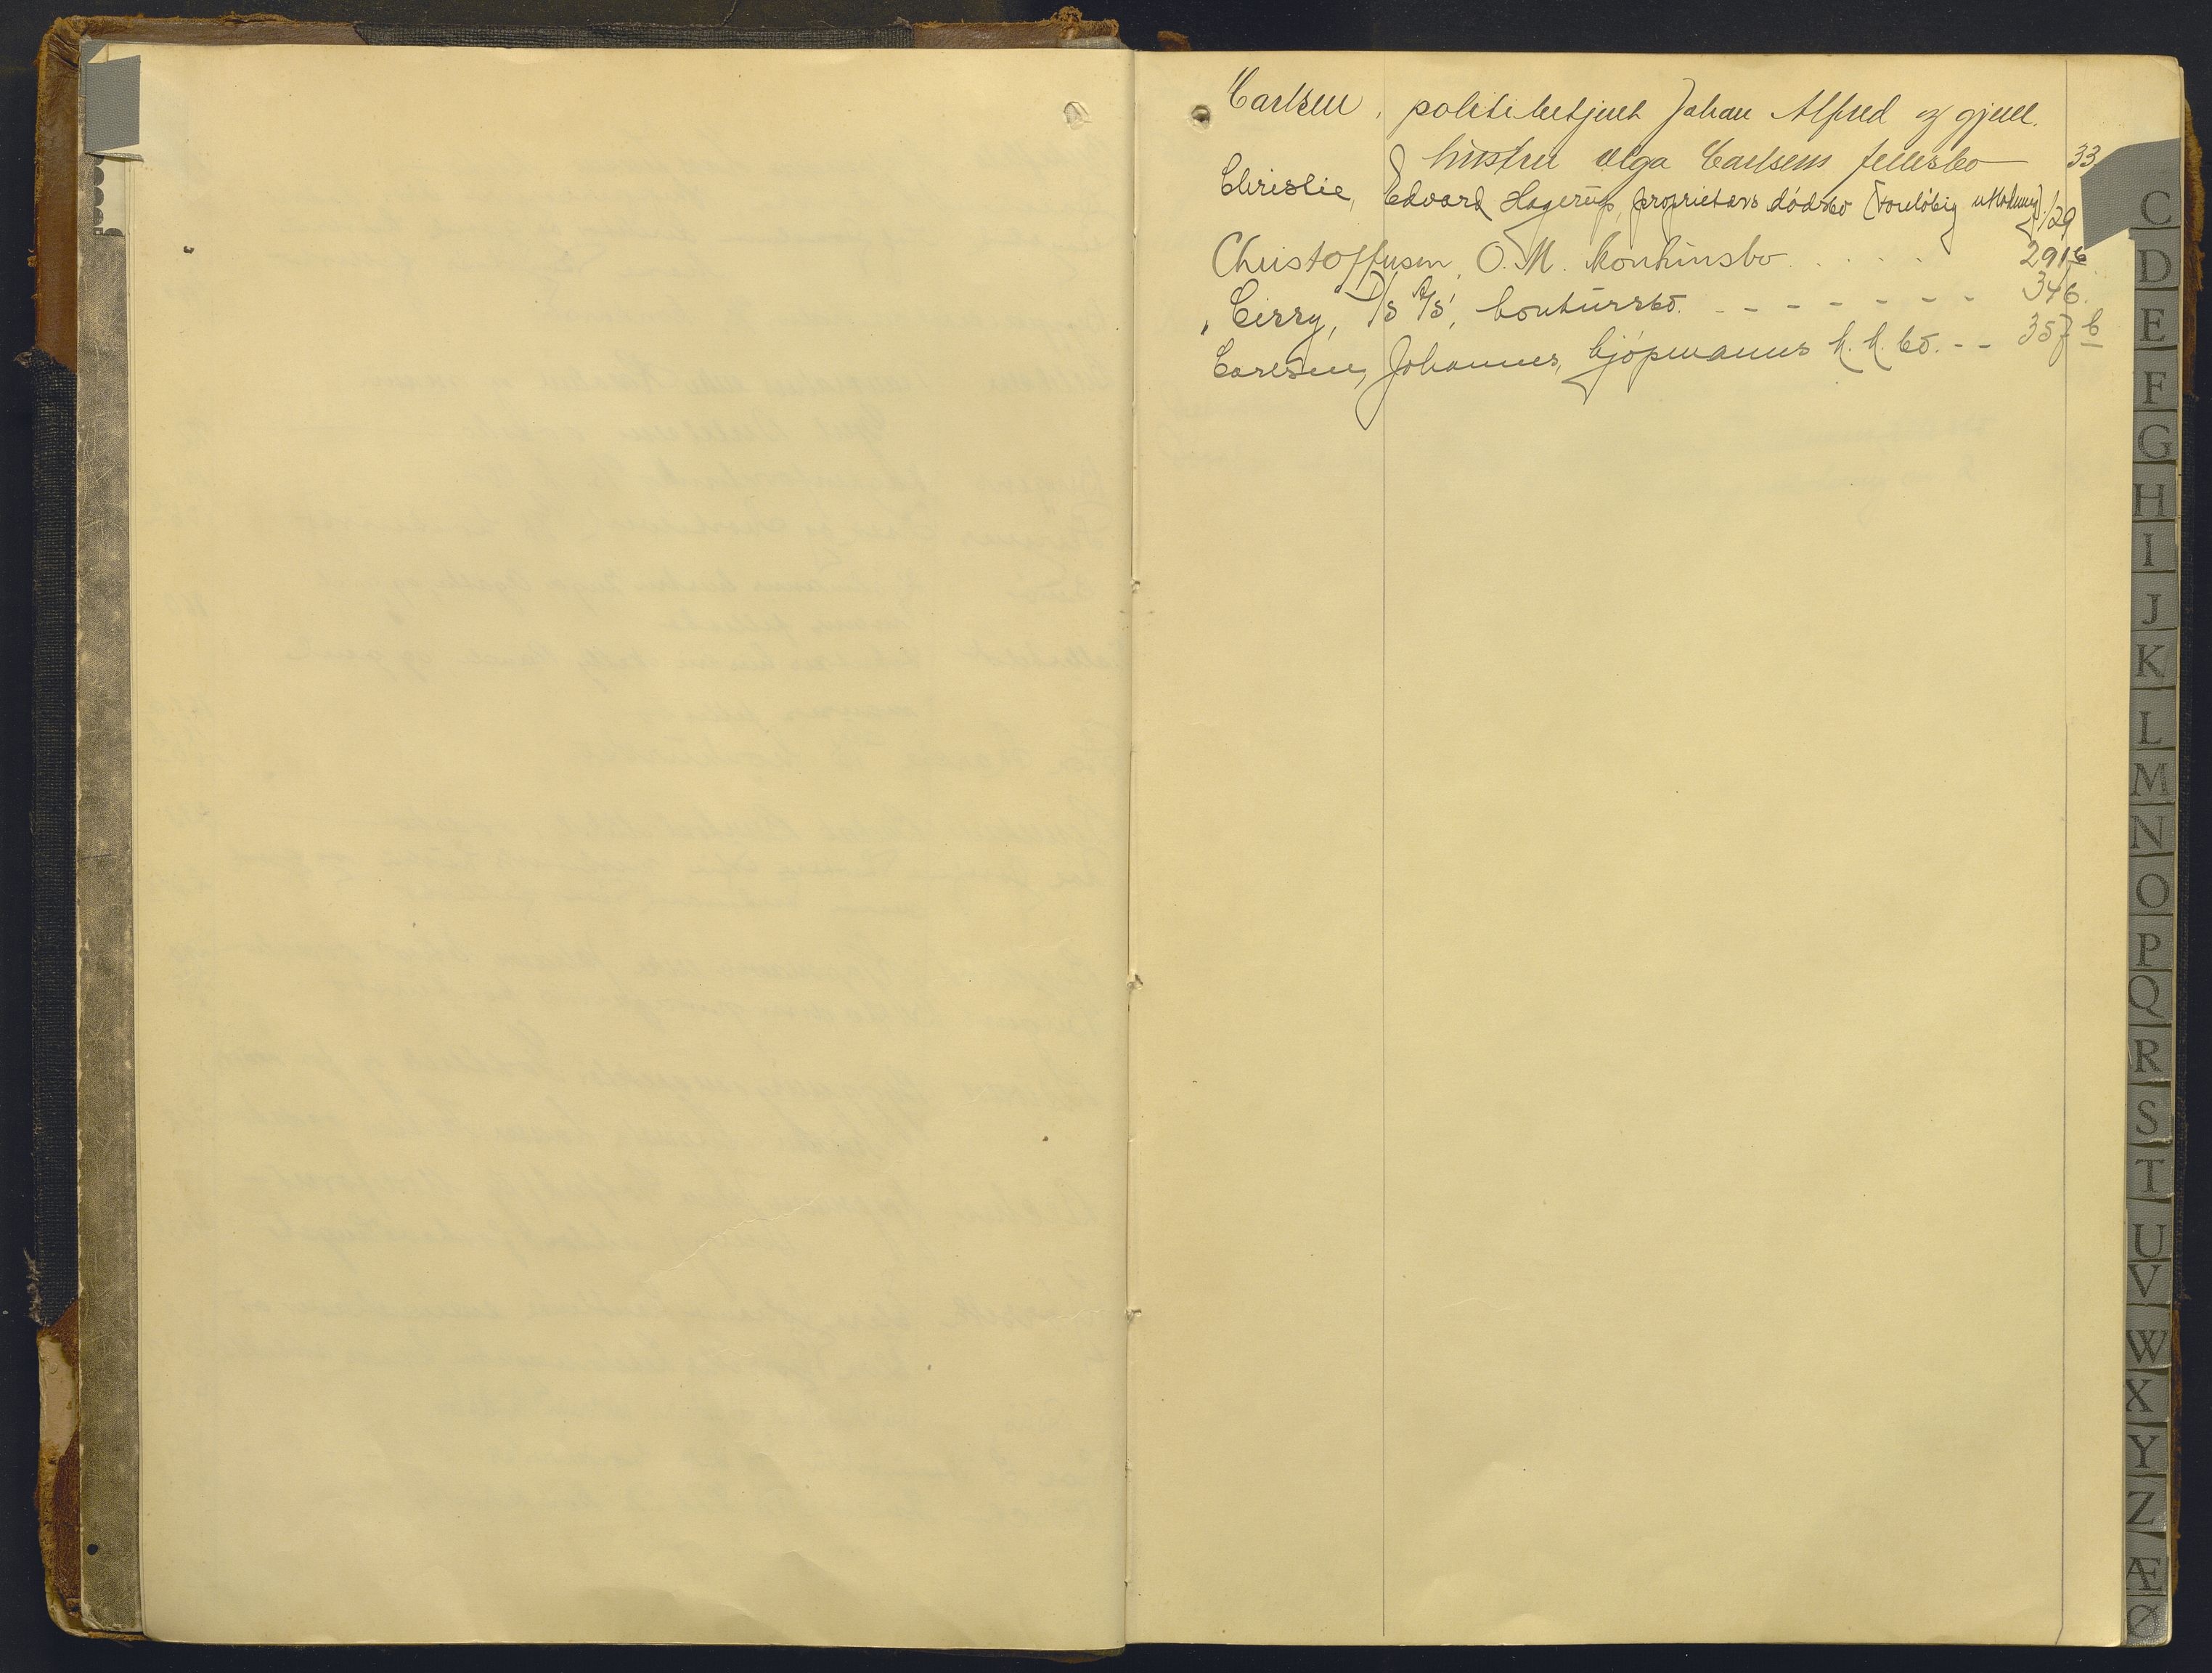 Carlsen, politibetjent Johan Alfred og gjenl.
hustru Olga Carlsens fellesbo 33
Christie, Edvard Hagerup, proprietærs dødsbo (foreløbig utlodning) 129
Christoffersen, O. M. konkursbo . . . . 291 b
"Cissy", D/S A/S', konkursbo. - - - - - - 346.
Carlsen, Johannes, kjøpmanns k. k. bo. - - 357 b
C
D
E
F
G
H
I
J
K
L
M
N
O
P
Q
R
S
T
U
V
W
X
Y
Z
Æ
Ø